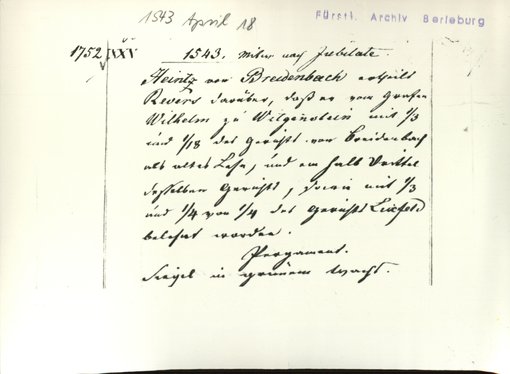 1543 April 18
Fürstl. Archiv Berleburg
1752 XXV 1543. Mitw. nach Jubilate.
Heintz von Breidenbach ertheilt
Revers darüber, daß er vom Grafen
Wilhelm zu Witgenstein mit 1/3
und 1/18 des Gerichts von Breidenbach
als altes Lehn, und ein halb Drittel
desselben Gerichts, sowie mit 1/3
und 1/4 von 1/4 des Gerichts Lixfeld
belehnt worden.
Pergament.
Siegel in grünem Wachs.